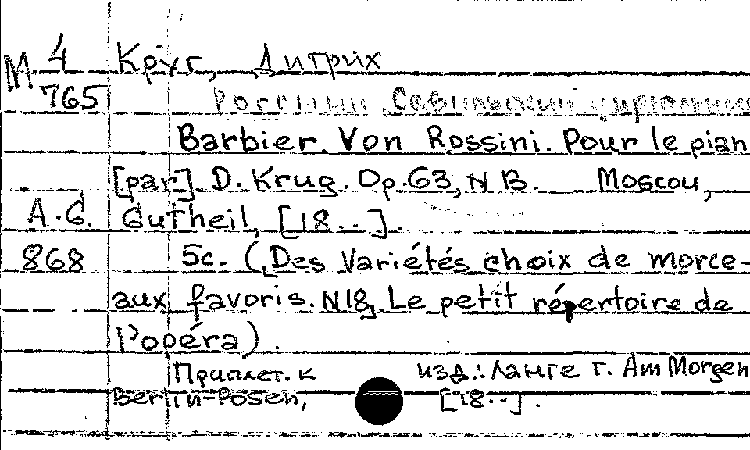 М 4 Круг, Дитрих
765 Россини. Севильский цирюльник
Barbier. Von Rossini. Pour le pian
[par] D. Krug. Op. 63, N B. Moscou,
A.G. Gutheil, [18..].
868 5c. (Des Variétés choix de morce-
aux favoris. N 18, Le petit répertoire de
l'opéra).
Приплет. к изд.: Ланге г. Am Morgen
Berlin-Posen, [18..].